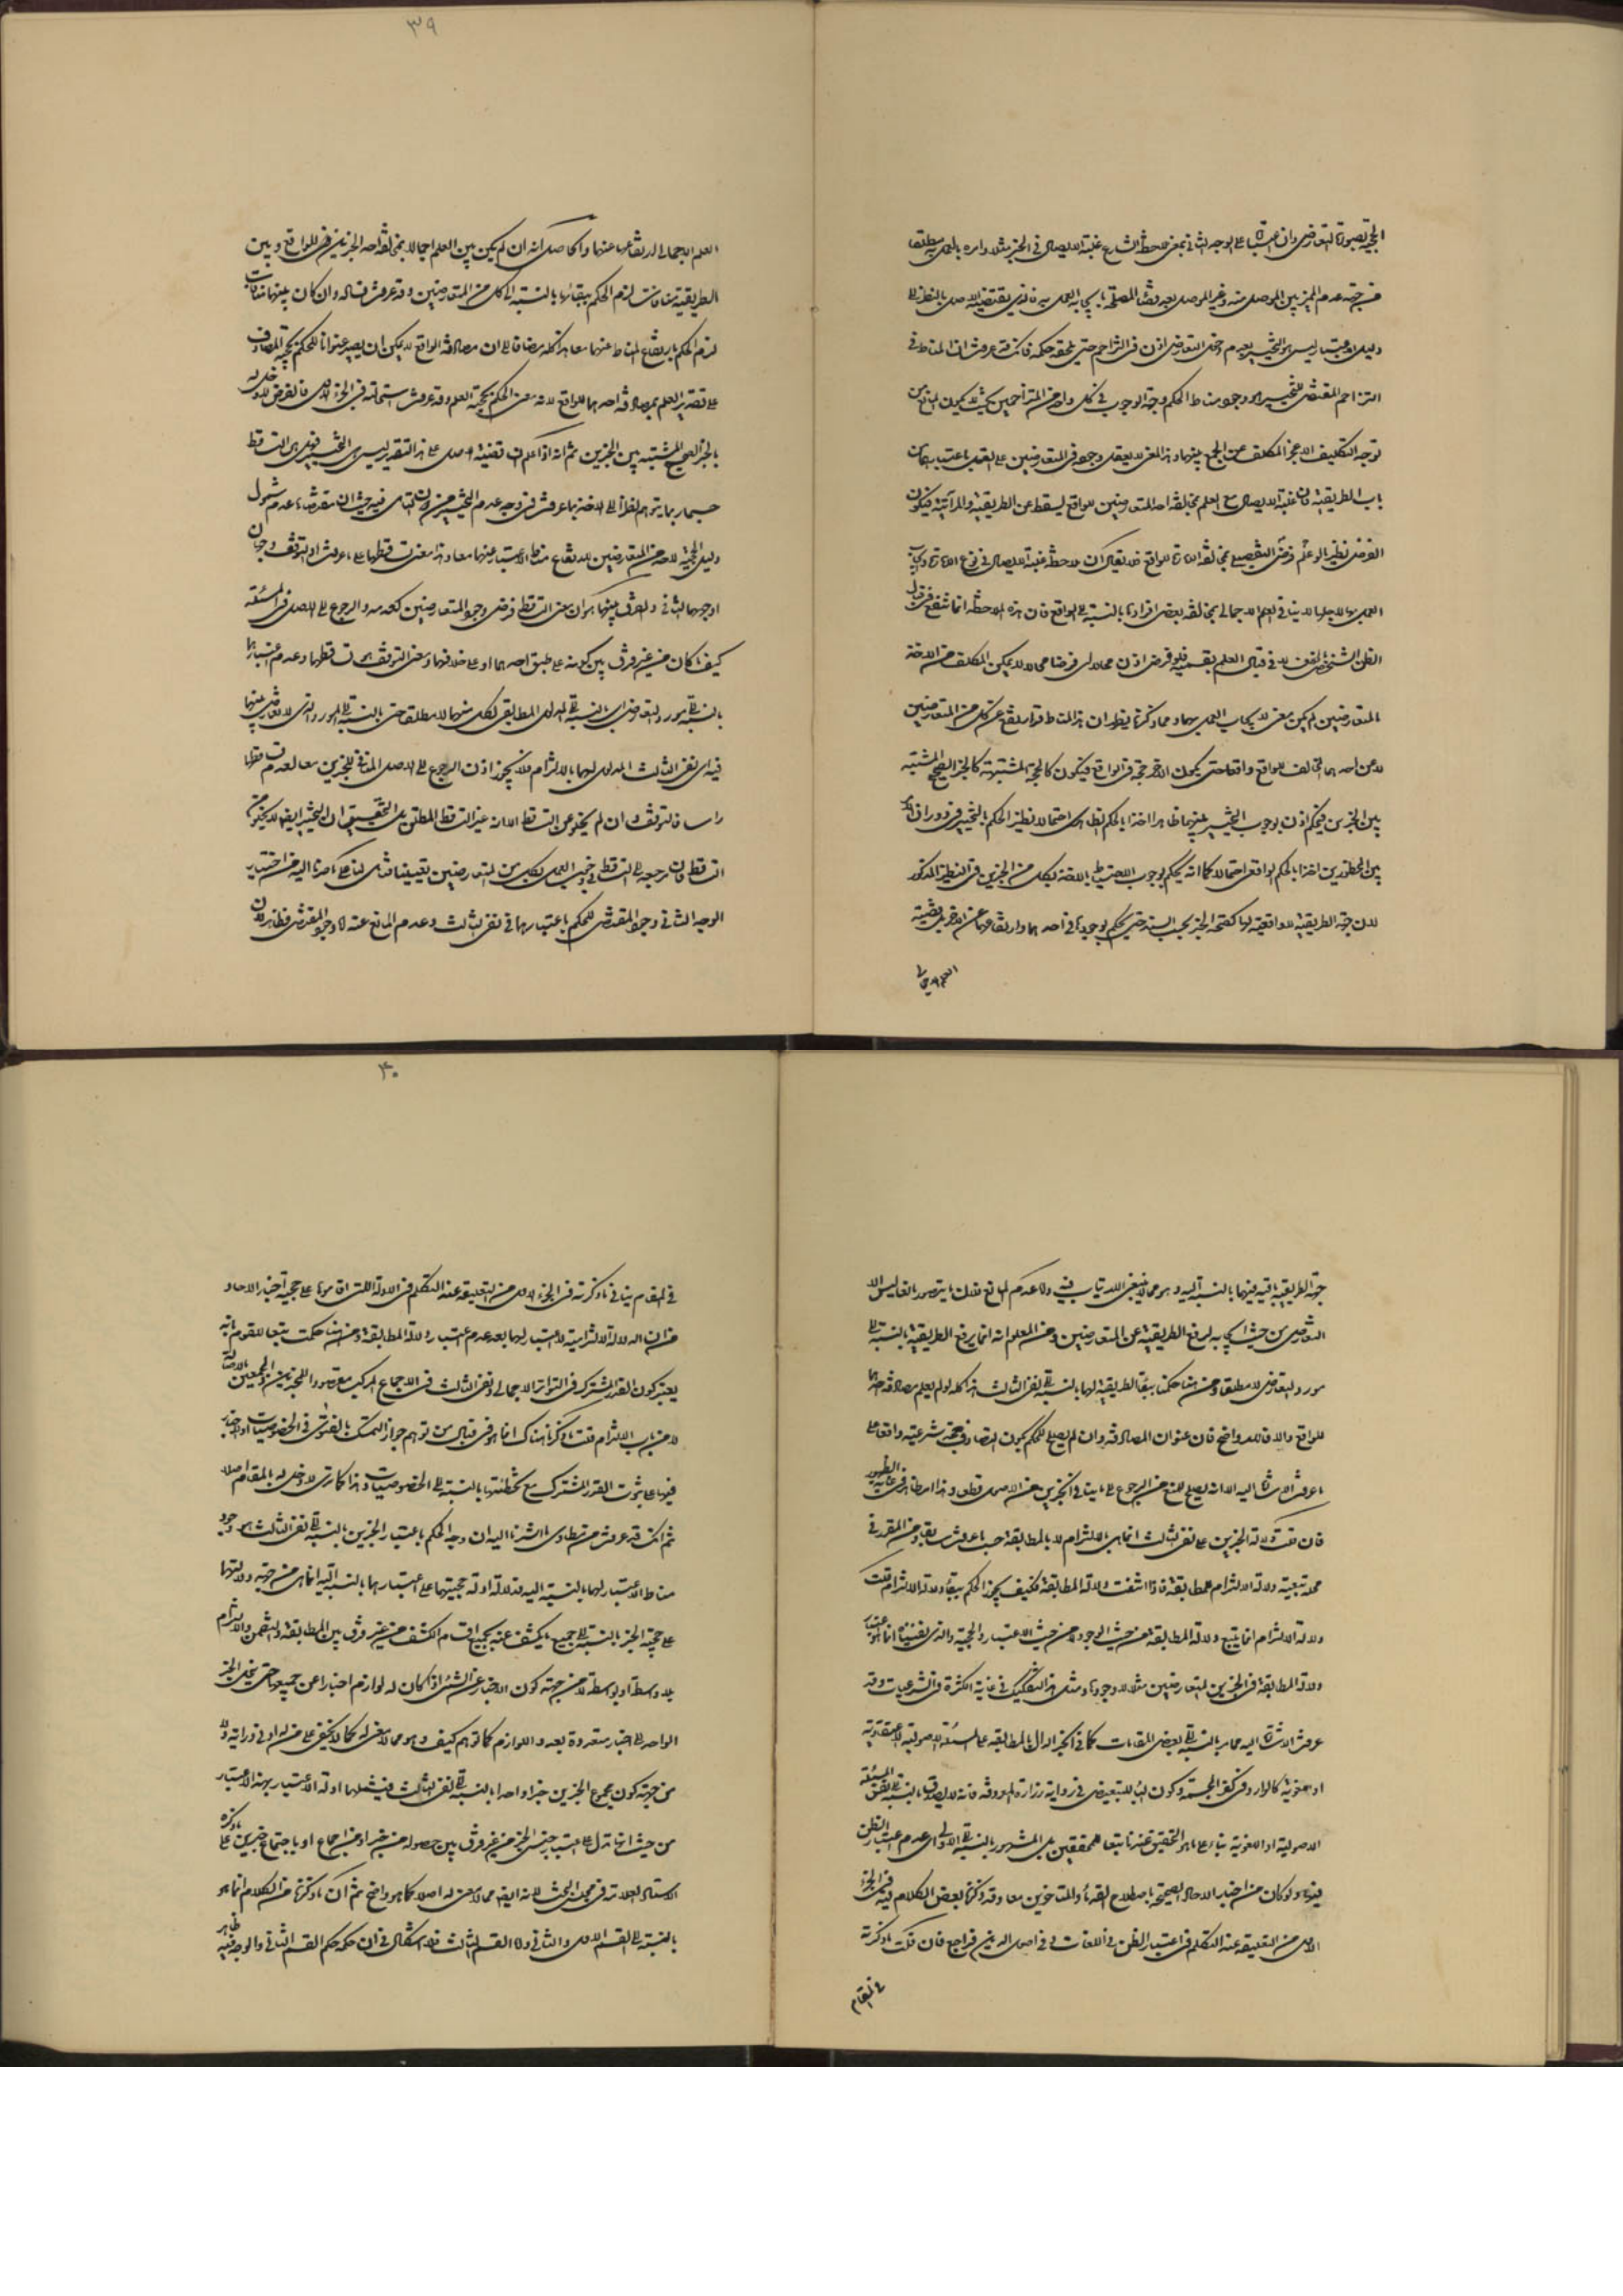 الحجية بصورة التعارض وان اعتبرناها على الوجه الثاني بمعنى لحاظ الشارع غلبة الايصال في الخبر مثلا وامره بالعمل به مطلقا
من جهة عدم الميز بين الموصل منه وغير الموصل بعد وفاء المصلحة بايجاب العمل به فالذي يقتضيه الاصل بالنظر الى
دليل الاعتبار ليس هو التخيير لعدم دخل التعارض اذن في التزاحم حتى يلحقه حكمه فانك قد عرفت ان المناط في
التزاحم المقتضي للتخيير هو وجود مناط الحكم وجهة الوجوب في كل واحد من المتزاحمين بحيث لا يكون المانع من
توجه التكليف الا عجز المكلف عن الجمع بينهما وهذا المعنى لا يعقل وجوده في المتعارضين على القول باعتبارهما من
باب الطريقية فان غلبة الايصال مع العلم بمخالفة احد المتعارضين للواقع يسقط عن الطريقية والمرآتية فيكون
الفرض نظير ما لو علم فرضا التفصيلي بمخالفة الامارة للواقع فلا يقال ان ملاحظة غلبة الايصال في نوع الامارة وايجاب
العمل بها لاجلها لا ينافي العلم الاجمالي بمخالفة بعض افرادها بالنسبة الى الواقع فان هذه الملاحظة انما تنفع في قبال
الظن الشخصي بالخلاف لا في قبال العلم بقسميه فلو فرض اذن محالا اي فرضا محالا لا يمكن المكلف من الاخذ
بالمتعارضين لم يكن معنى لايجاب العمل بهما ومما ذكرنا يظهر ان هذا المناط قد ارتفع عن كل من المتعارضين
لا عن احدهما المخالف للواقع واقعا حتى يكون الآخر حجة في الواقع فيكون كالحجة المشتبهة كالخبر الصحيح المشتبه
بين الخبرين فيحكم اذن بوجوب التخيير بينهما ظاهرا اخذا بالحكم الظاهري احتمالا نظير الحكم بالتخيير في دوران الامر
بين المحظورين اخذا بالحكم الواقعي احتمالا كما انه يحكم بوجوب الاحتياط بالاخذ بكل من الخبرين في النظير المذكور
لان جهة الطريقية الواقعية لها كصحة الخبر بحسب السند حتى يحكم بوجودها في احدهما وارتفاعها عن الآخر بل قضية
العلم الاجمالي
٣٩
العلم الاجمالي ارتفاعها عنهما والحاصل انه ان لم يكن بين العلم اجمالا بمخالفة احد الخبرين للواقع وبين
الطريقية منافات لزم الحكم ببقائها بالنسبة الى كل من المتعارضين وقد عرفت فساده وان كان بينهما منافات
لزم الحكم بارتفاع المناط عنهما معا هذا كله مضافا الى ان مصادفة الواقع لا يمكن ان يصير عنوانا للحكم بحجية المصادف
على تقدير العلم بمصادفة احدهما للواقع لانه عين الحكم بحجية العلم وقد عرفت استحالته في الجزء الاول فالفرض لا دخل له
بالخبر الصحيح المشتبه بين الخبرين ثم انه اذا علم ان قضية الاصل على هذا التقدير ليس هو التخيير فهل هي التساقط
حسبما ربما يتوهم نظرا الى الاخذ بما عرفت في وجه عدم التخيير من ان التأمل فيه حيث ان مقتضاه عدم شمول
دليل الحجية لاحد من المتعارضين لارتفاع مناط الاعتبار عنهما معا وهذا معنى تساقطهما على ما عرفت او التوقف وجهان
اوجههما الثاني والفرق بينهما هو ان معنى التساقط فرض وجود المتعارضين كعدمه والرجوع الى الاصل في المسئلة
كيفما كان من غير فرق بين كونه على طبق احدهما او على خلافهما ومعنى التوقف هو تساقطهما وعدم اعتبارهما
بالنسبة الى مورد التعارض اي بالنسبة الى المدلول المطابقي لكل منهما لا مطلقا حتى بالنسبة الى المورد الذي لا تعارض بينهما
فيه اي نفي الثالث المدلول لهما بالالتزام فلا يجوز اذن الرجوع الى الاصل المنافي للخبرين معا لعدم تساقطهما
راسا فالتوقف وان لم يخلو عن التساقط الا انه غير التساقط المطلق بل التحقيق ان التخيير ايضا لا يخلو عن
التساقط فان مرجعه الى التساقط في وجوب العمل بكل من المتعارضين تعيينا فتأمل لنا على ما صرنا اليه من اختيار
الوجه الثاني وجود المقتضي للحكم باعتبارهما في نفي الثالث وعدم المانع عنه اما وجود المقتضي فظاهر لان
جهة الطريقية باقية فيهما بالنسبة اليه وهو مما لا ينبغي الارتياب فيه واما عدم المانع فلان ما يتصور مانعا ليس الا
التعارض من حيث ايجابه لرفع الطريقية عن المتعارضين ومن المعلوم انه انما يرفع الطريقية بالنسبة الى
مورد التعارض لا مطلقا ومن هنا حكمنا ببقاء الطريقية لها بالنسبة الى نفي الثالث هذا كله لو لم يعلم مصادفة احدهما
للواقع والا فالامر واضح فان عنوان المصادفة وان لم يصلح للحكم بكون المصادف حجة شرعية واقعا على
ما عرفت الاشارة اليه الا انه يصلح للمنع من الرجوع الى ما ينافي الخبرين من الاصل قطعا وهذا امر ظاهر في غاية الظهور
فان قلت دلالة الخبرين على نفي الثالث انما هي بالالتزام لا بالمطابقة حسبما عرفت سابقا ومن المقرر في
محله تبعية دلالة الالتزام للمطابقة فاذا انتفت دلالة المطابقة فكيف يمكن الحكم ببقاء دلالة الالتزام قلت
دلالة الالتزام انما يتبع دلالة المطابقة من حيث الوجود لا من حيث الاعتبار والحجية والذي نفيناه انما هو اعتبار
دلالة المطابقة في الخبرين المتعارضين مثلا لا وجودها ومثل هذا التفكيك في غاية الكثرة في الشرعيات وقد
عرفت الاشارة اليه مما مر بالنسبة الى بعض المقامات كما في الخبر الدال بالمطابقة على المسئلة الاصولية الاعتقادية
او اللغوية كالوارد في كفر المجسمة وكون الباء للتبعيض في رواية زرارة المعروفة فانه لا يصدق بالنسبة الى نفس المسئلة
الاصولية او اللغوية بناء على ما هو التحقيق عندنا تبعا للمحققين بل المشهور بالنسبة الى الاولى اي عدم اعتبار الظن
فيها ولو كان من اخبار الاحاد الصحيحة باصطلاح القدماء والمتأخرين معا وقد ذكرنا بعض الكلام فيه في الجزء
الاول من التعليقة عند التكلم في اعتبار الظن في اللغات وفي اصول الدين فراجع فان قلت ما ذكرته
في المقام
٤٠
في المقام ينافي ما ذكرته في الجزء الاول من التعليقة عند التكلم في الادلة اللتي اقاموها على حجية اخبار الاحاد
من ان الدلالة الالتزامية لا اعتبار لها بعد عدم اعتبار دلالة المطابقة ومن هنا حكمت تبعا للقوم بانه
يعتبر كون القدر المشترك في التواتر الاجمالي ونفي الثالث في الاجماع المركب مقصودا للمخبرين والمجمعين بالاصالة
لا من باب الالتزام قلت ما ذكرنا هناك انما هو في قبال من توهم جواز التمسك بالفتوى في الخصوصيات او الاخبار
فيها على ثبوت القدر المشترك مع تخطئتها بالنسبة الى الخصوصيات وهذا كما ترى لا دخل له بالمقام اصلا
ثم انك قد عرفت من مطاوي ما اشرنا اليه ان وجه الحكم باعتبار الخبرين بالنسبة الى نفي الثالث هو وجود
مناط الاعتبار لهما بالنسبة اليه فدلالة ادلة حجيتهما على اعتبارهما بالنسبة اليه انما هي من جهة دلالتها
على حجية الخبر بالنسبة الى جميع ما يكشف عنه بجميع اقسام الكشف من غير فرق بين المطابقة والتضمن والالتزام
بلا واسطة او بواسطة لا من جهة كون الاخبار عن الشئ اذا كان له لوازم اخبارا عن جميعها حتى ينحل الخبر
الواحد الى اخبار متعددة بعدد اللوازم كما توهم كيف وهو مما لا معنى له كما لا يخفى على من له ادنى دراية ولا
من جهة كون مجموع الخبرين خبرا واحدا بالنسبة الى نفي الثالث فيشملهما ادلة الاعتبار بهذا الاعتبار
من حيث انها تدل على اعتبار جنس الخبر من غير فرق بين حصوله من خبر او من اجماع او باجتماع خبرين على ما ذكره
الاستاد العلامة في مجلس البحث لانه ايضا مما لا معنى له اصلا كما هو واضح ثم ان ما ذكرنا من الكلام انما هو
بالنسبة الى القسم الاول والثاني واما القسم الثالث فلا اشكال في ان حكمه حكم القسم الثاني والوجه فيه ظاهر